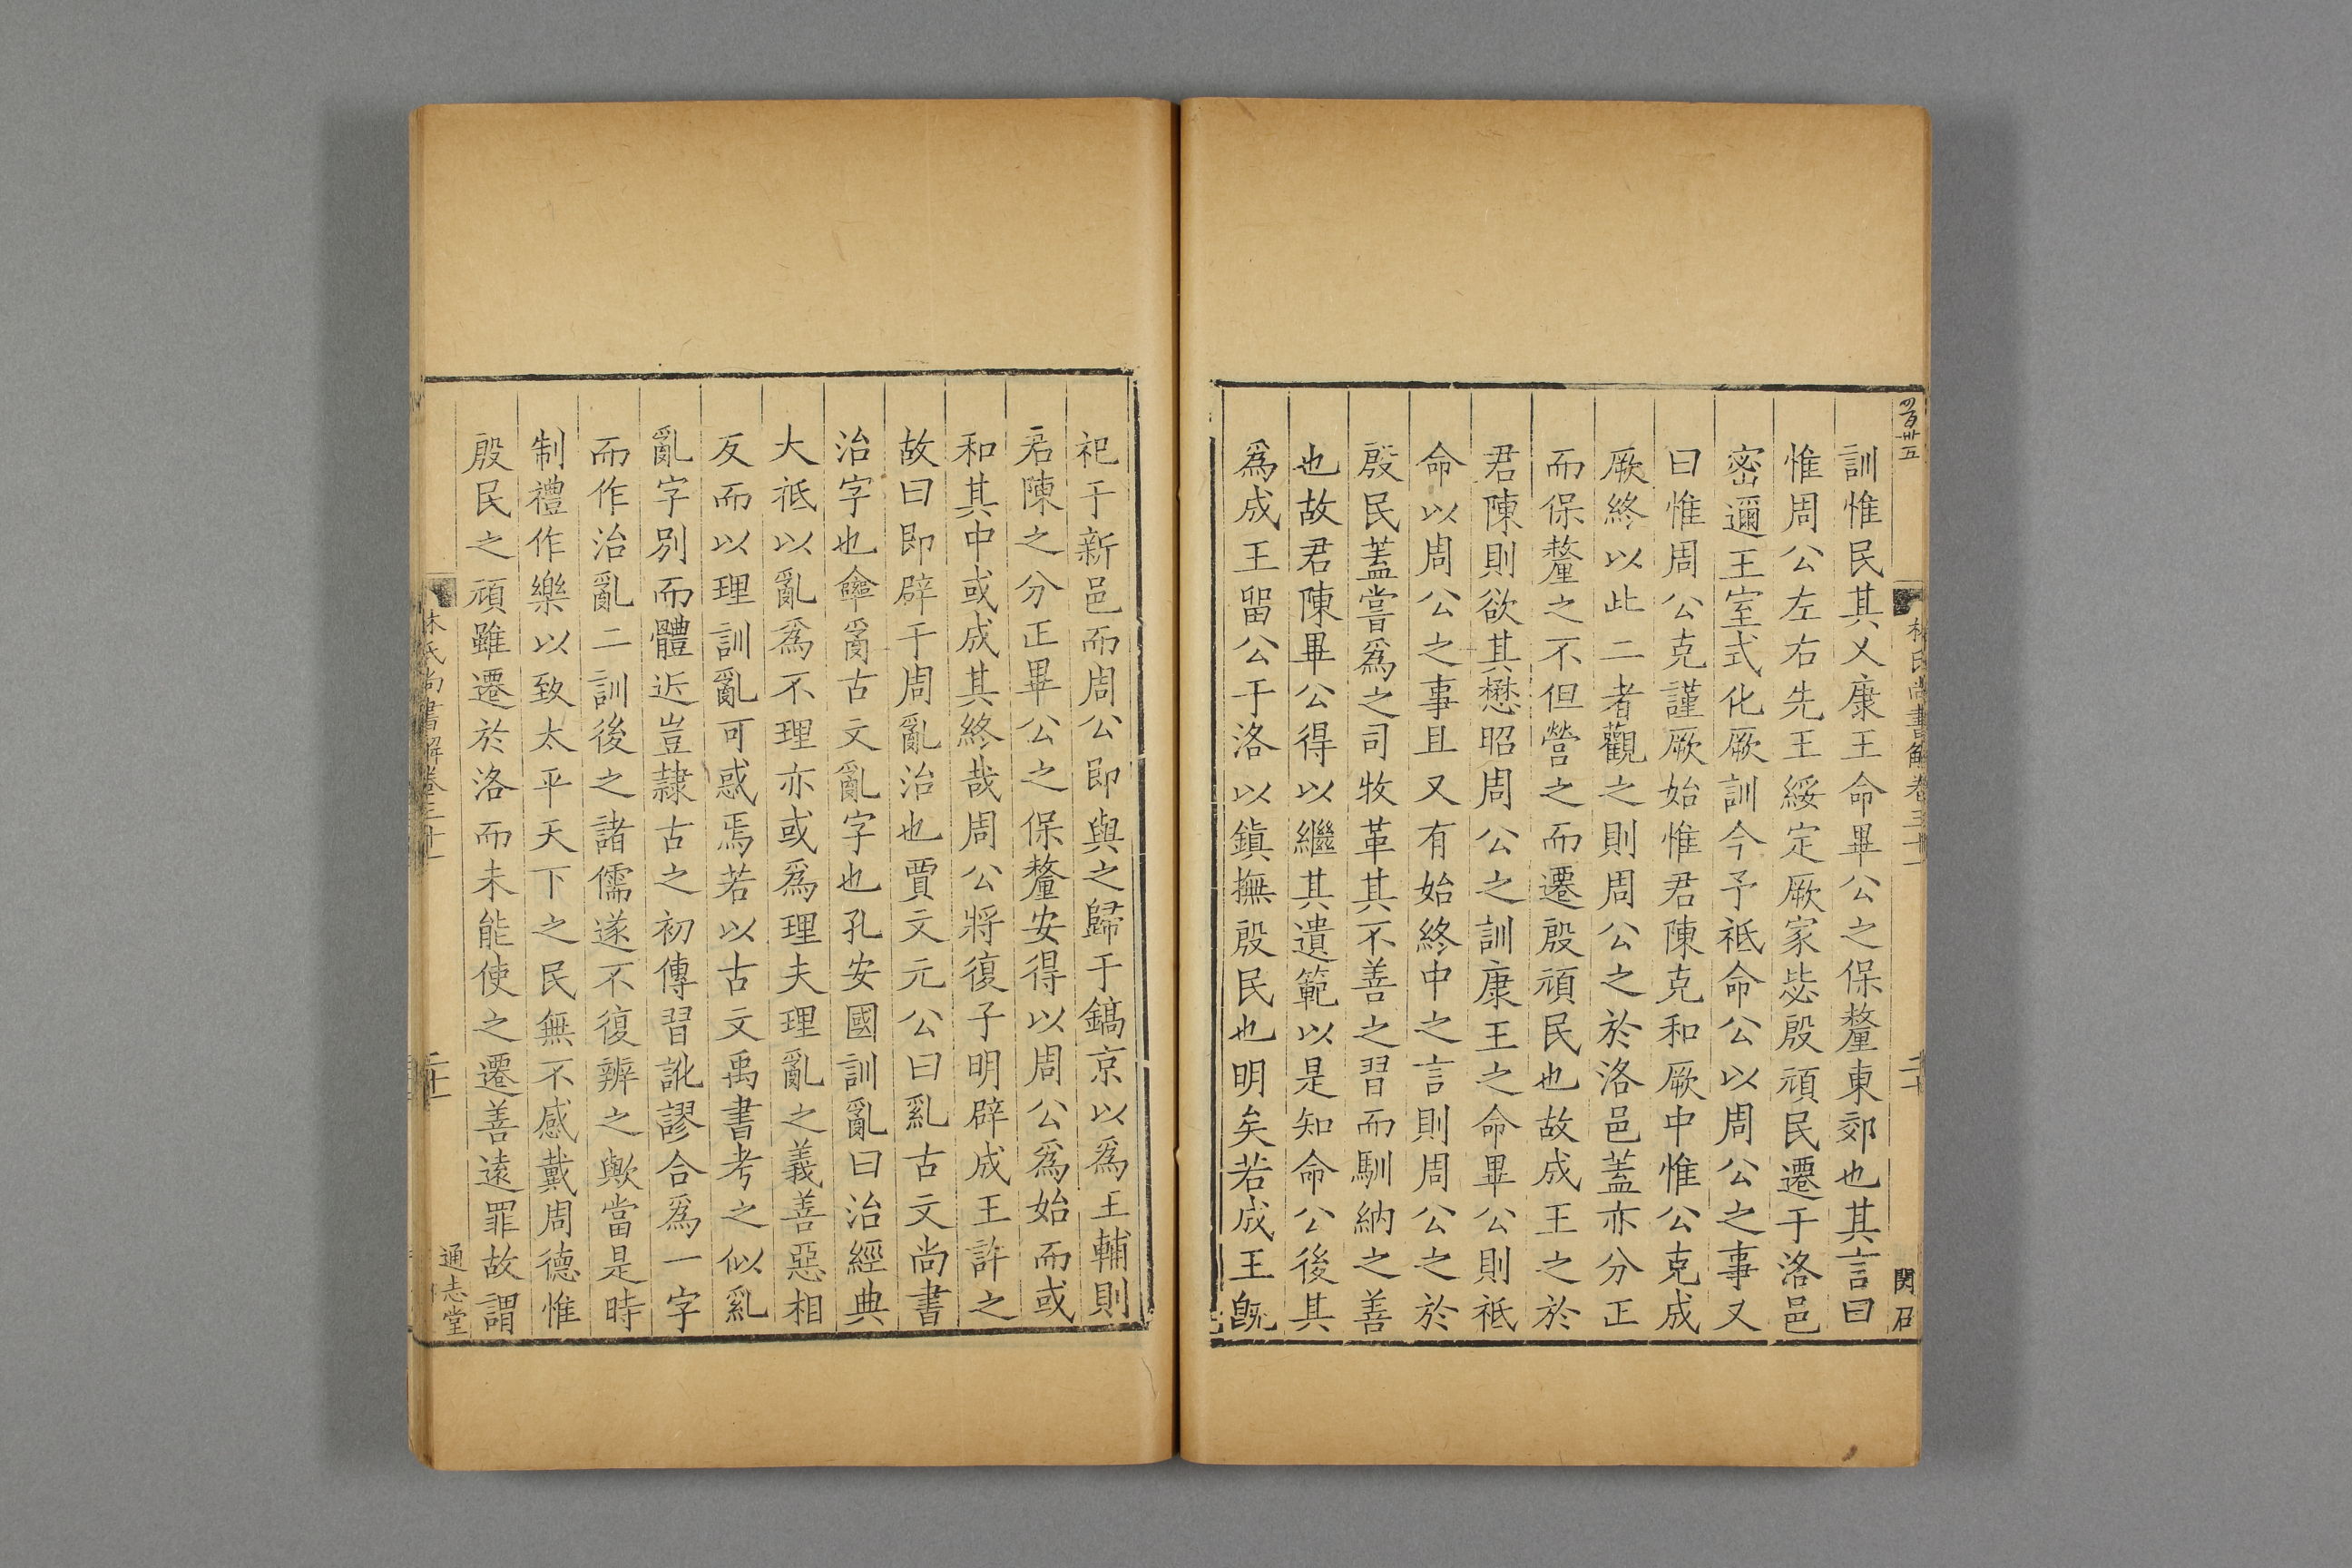 四百卅五
林氏尚書解卷三十一
二十
関召
訓惟民其乂康王命畢公之保釐東郊也其言曰
惟周公左右先王綏定厥家毖殷頑民遷于洛邑
密邇王室式化厥訓今予祗命公以周公之事又
曰惟周公克謹厥始惟君陳克和厥中惟公克成
厥終以此二者觀之則周公之於洛邑蓋亦分正
而保釐之不但營之而遷殷頑民也故成王之於
君陳則欲其懋昭周公之訓康王之命畢公則祗
命以周公之事且又有始終中之言則周公之於
殷民蓋嘗爲之司牧革其不善之習而馴納之善
也故君陳畢公得以繼其遺範以是知命公後其
爲成王留公于洛以鎮撫殷民也明矣若成王旣
祀于新邑而周公即與之歸于鎬京以爲王輔則
君陳之分正畢公之保釐安得以周公爲始而或
和其中或成其終哉周公將復子明辟成王許之
故曰即辟于周亂治也賈文元公曰乿古文尚書
治字也𤔔古文亂字也孔安國訓亂曰治經典
大祗以亂爲不理亦或爲理夫理亂之義善惡相
反而以理訓亂可惑焉若以古文禹書考之似乿
亂字別而體近豈隸古之初傳習訛謬合爲一字
而作治亂二訓後之諸儒遂不復辨之歟當是時
制禮作樂以致太平天下之民無不感戴周德惟
殷民之頑雖遷於洛而未能使之遷善遠罪故謂
林氏尚書解卷三十一
通志堂